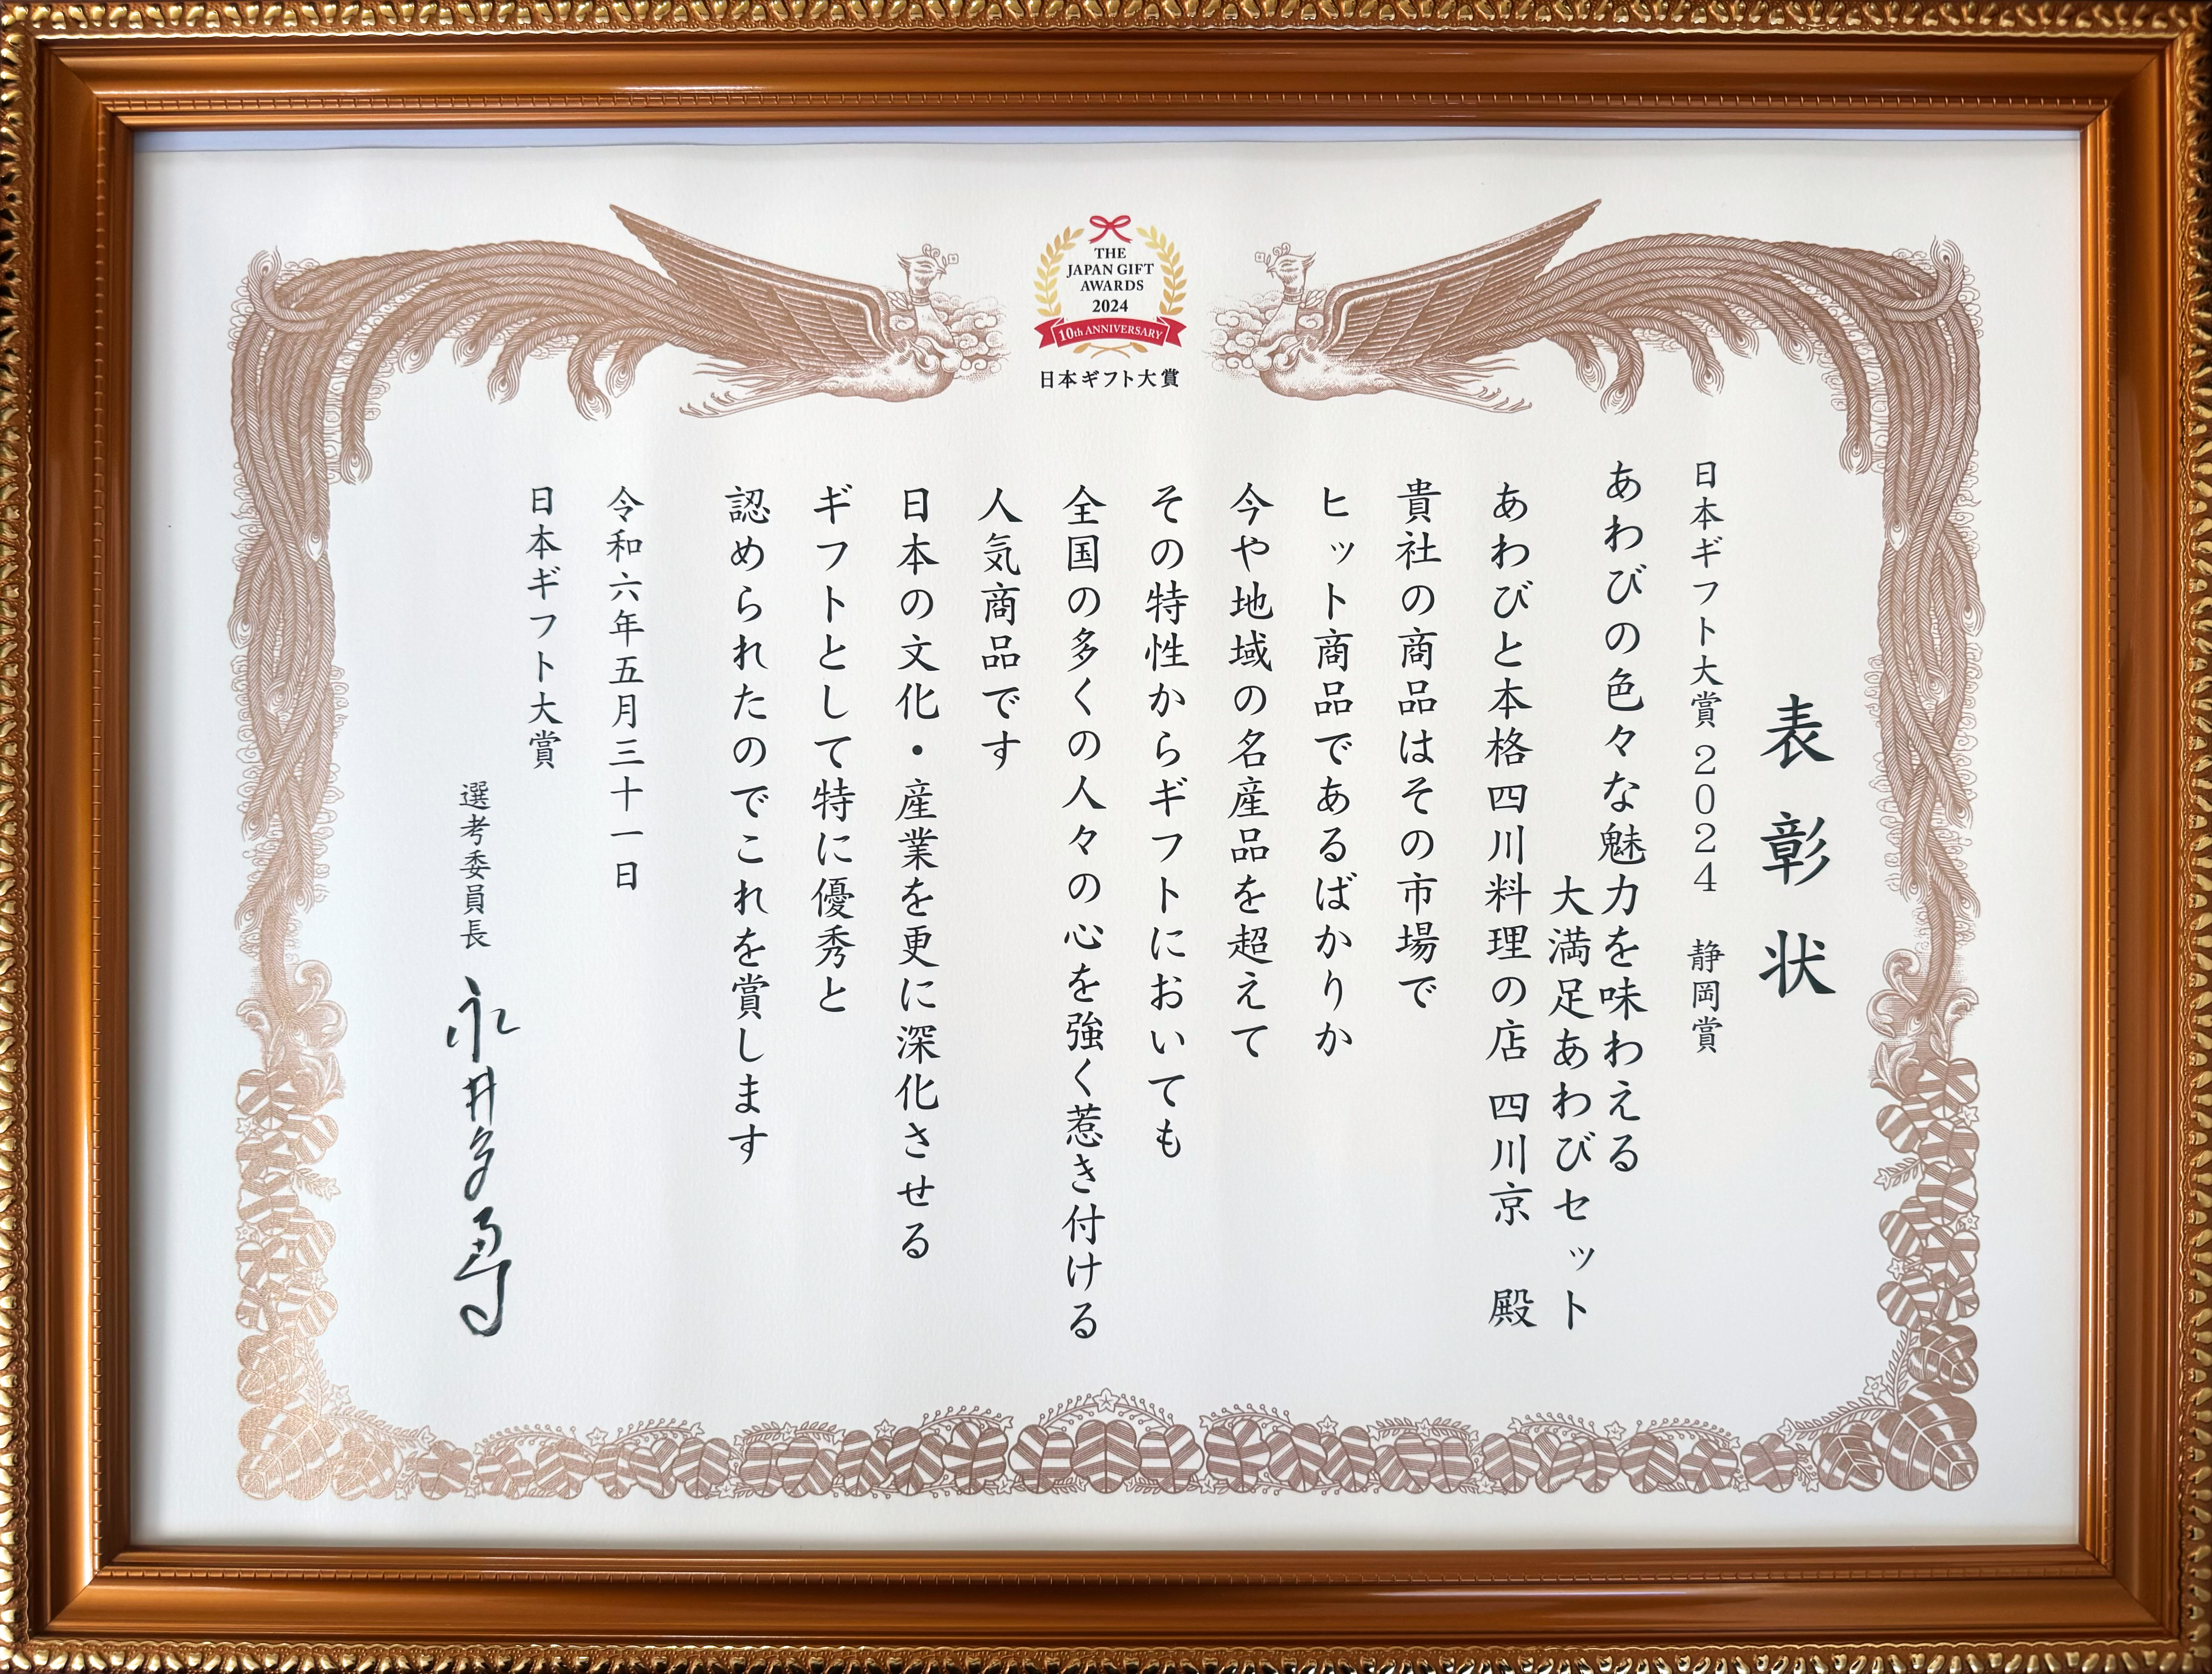 THE
JAPAN GIFT
AWARDS
2024
10th ANNIVERSARY
日本ギフト大賞
表彰状
日本ギフト大賞 2024 静岡賞
あわびの色々な魅力を味わえる
大満足あわびセット
あわびと本格四川料理の店 四川京 殿
貴社の商品はその市場で
ヒット商品であるばかりか
今や地域の名産品を超えて
その特性からギフトにおいても
全国の多くの人々の心を強く惹き付ける
人気商品です
日本の文化・産業を更に深化させる
ギフトとして特に優秀と
認められたのでこれを賞します
令和六年五月三十一日
日本ギフト大賞
選考委員長 永井多恵子